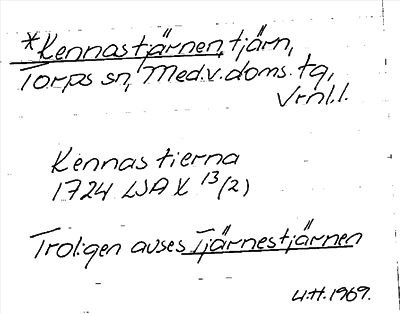 *Kennastjärnen, tjärn,
Torps sn, Med.v. doms. tg,
Vrnl.l.
Kennas tierna
1724 LSA X 13/(2)
Troligen avses Tjärnestjärnen
U.H. 1969.